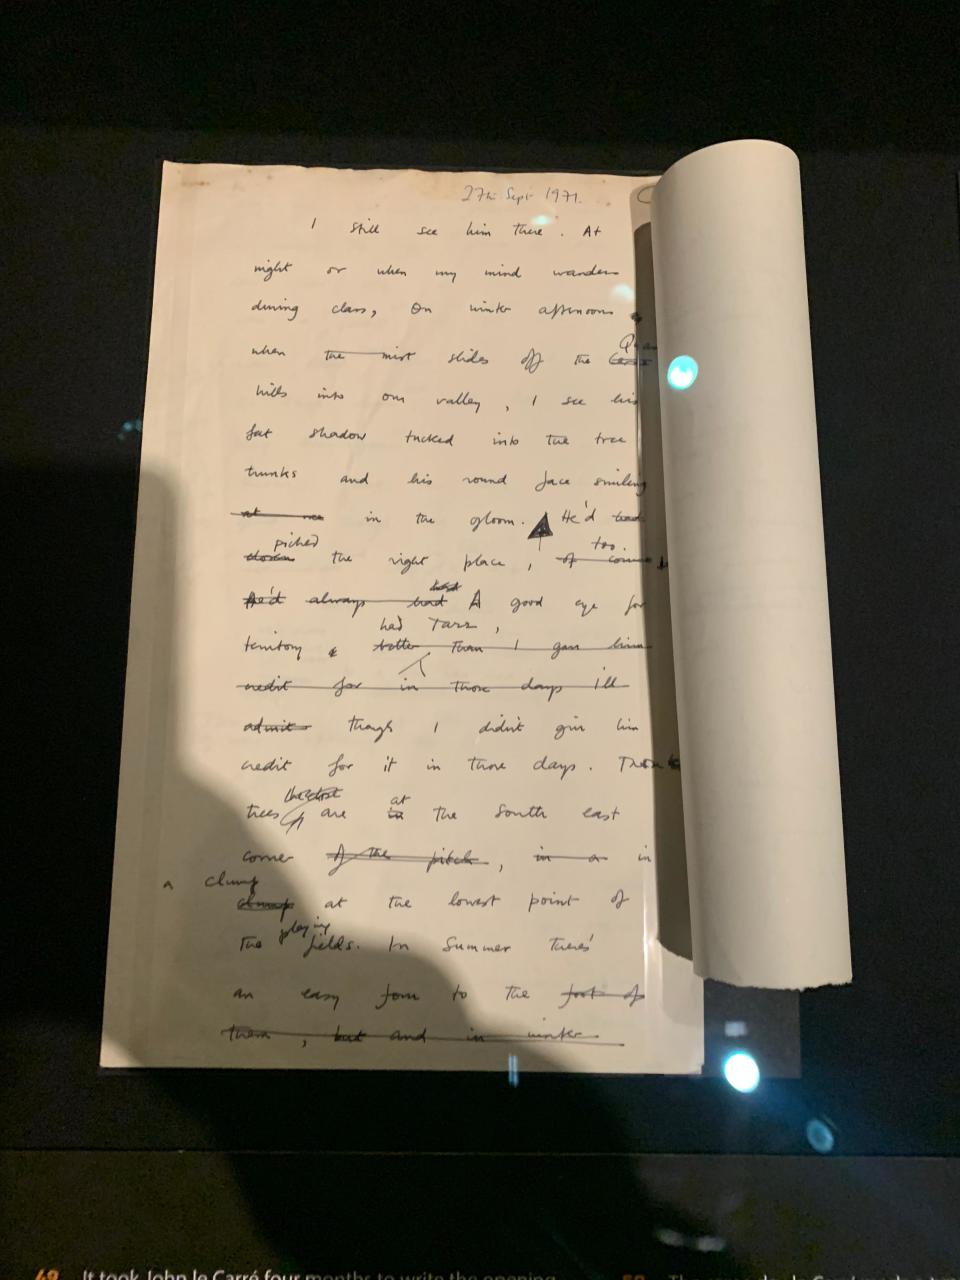 27th Sept 1971.
I still see him there. At
night or when my mind wanders
during class, On winter afternoons
when the mist slides off the
hills into our valley, I see his
fat shadow tucked into the tree
trunks and his round face smiling
at me in the gloom. He'd had
picked too
chosen the right place, of course
had
He'd always had A good eye for
had Tarr,
territory better than I gave him
credit for in those days I'll
admit though I didn't give him
credit for it in those days.
at
trees are in the South east
corner of the pitch, in a in
a clump
clump at the lowest point of
playing
the fields. In Summer there's
an easy to the foot of
them, but and in winter
49 It took John le Carré four months to write the opening
50